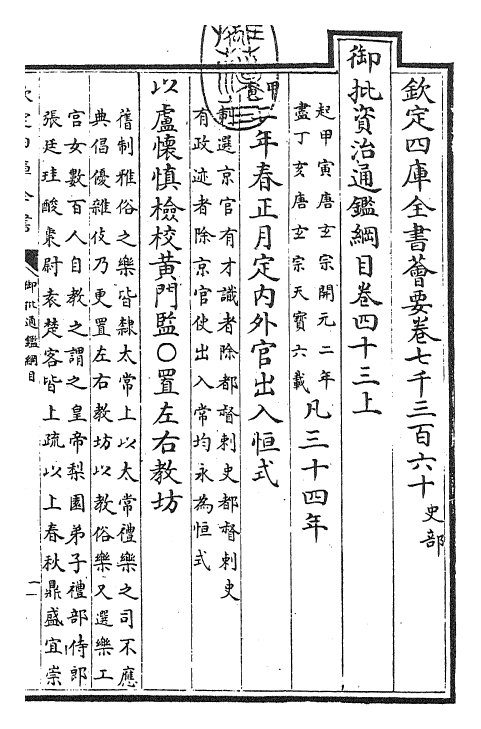 欽定四庫全書薈要卷七千三百六十 史部
御批資治通鑑綱目卷四十三上
起甲寅唐玄宗開元二年
盡丁亥唐玄宗天寶六載
凡三十四年
甲寅
二年春正月定內外官出入恒式
制選京官有才識者除都督刺史都督刺史
有政迹者除京官使出入常均永為恒式
以盧懷慎檢校黃門監○置左右教坊
舊制雅俗之樂皆隸太常上以太常禮樂之司不應
典倡優雜伎乃更置左右教坊以教俗樂又選樂工
宮女數百人自教之謂之皇帝梨園弟子禮部侍郎
張廷珪酸棗尉袁楚客皆上疏以上春秋鼎盛宜崇
御批通鑑綱目
一